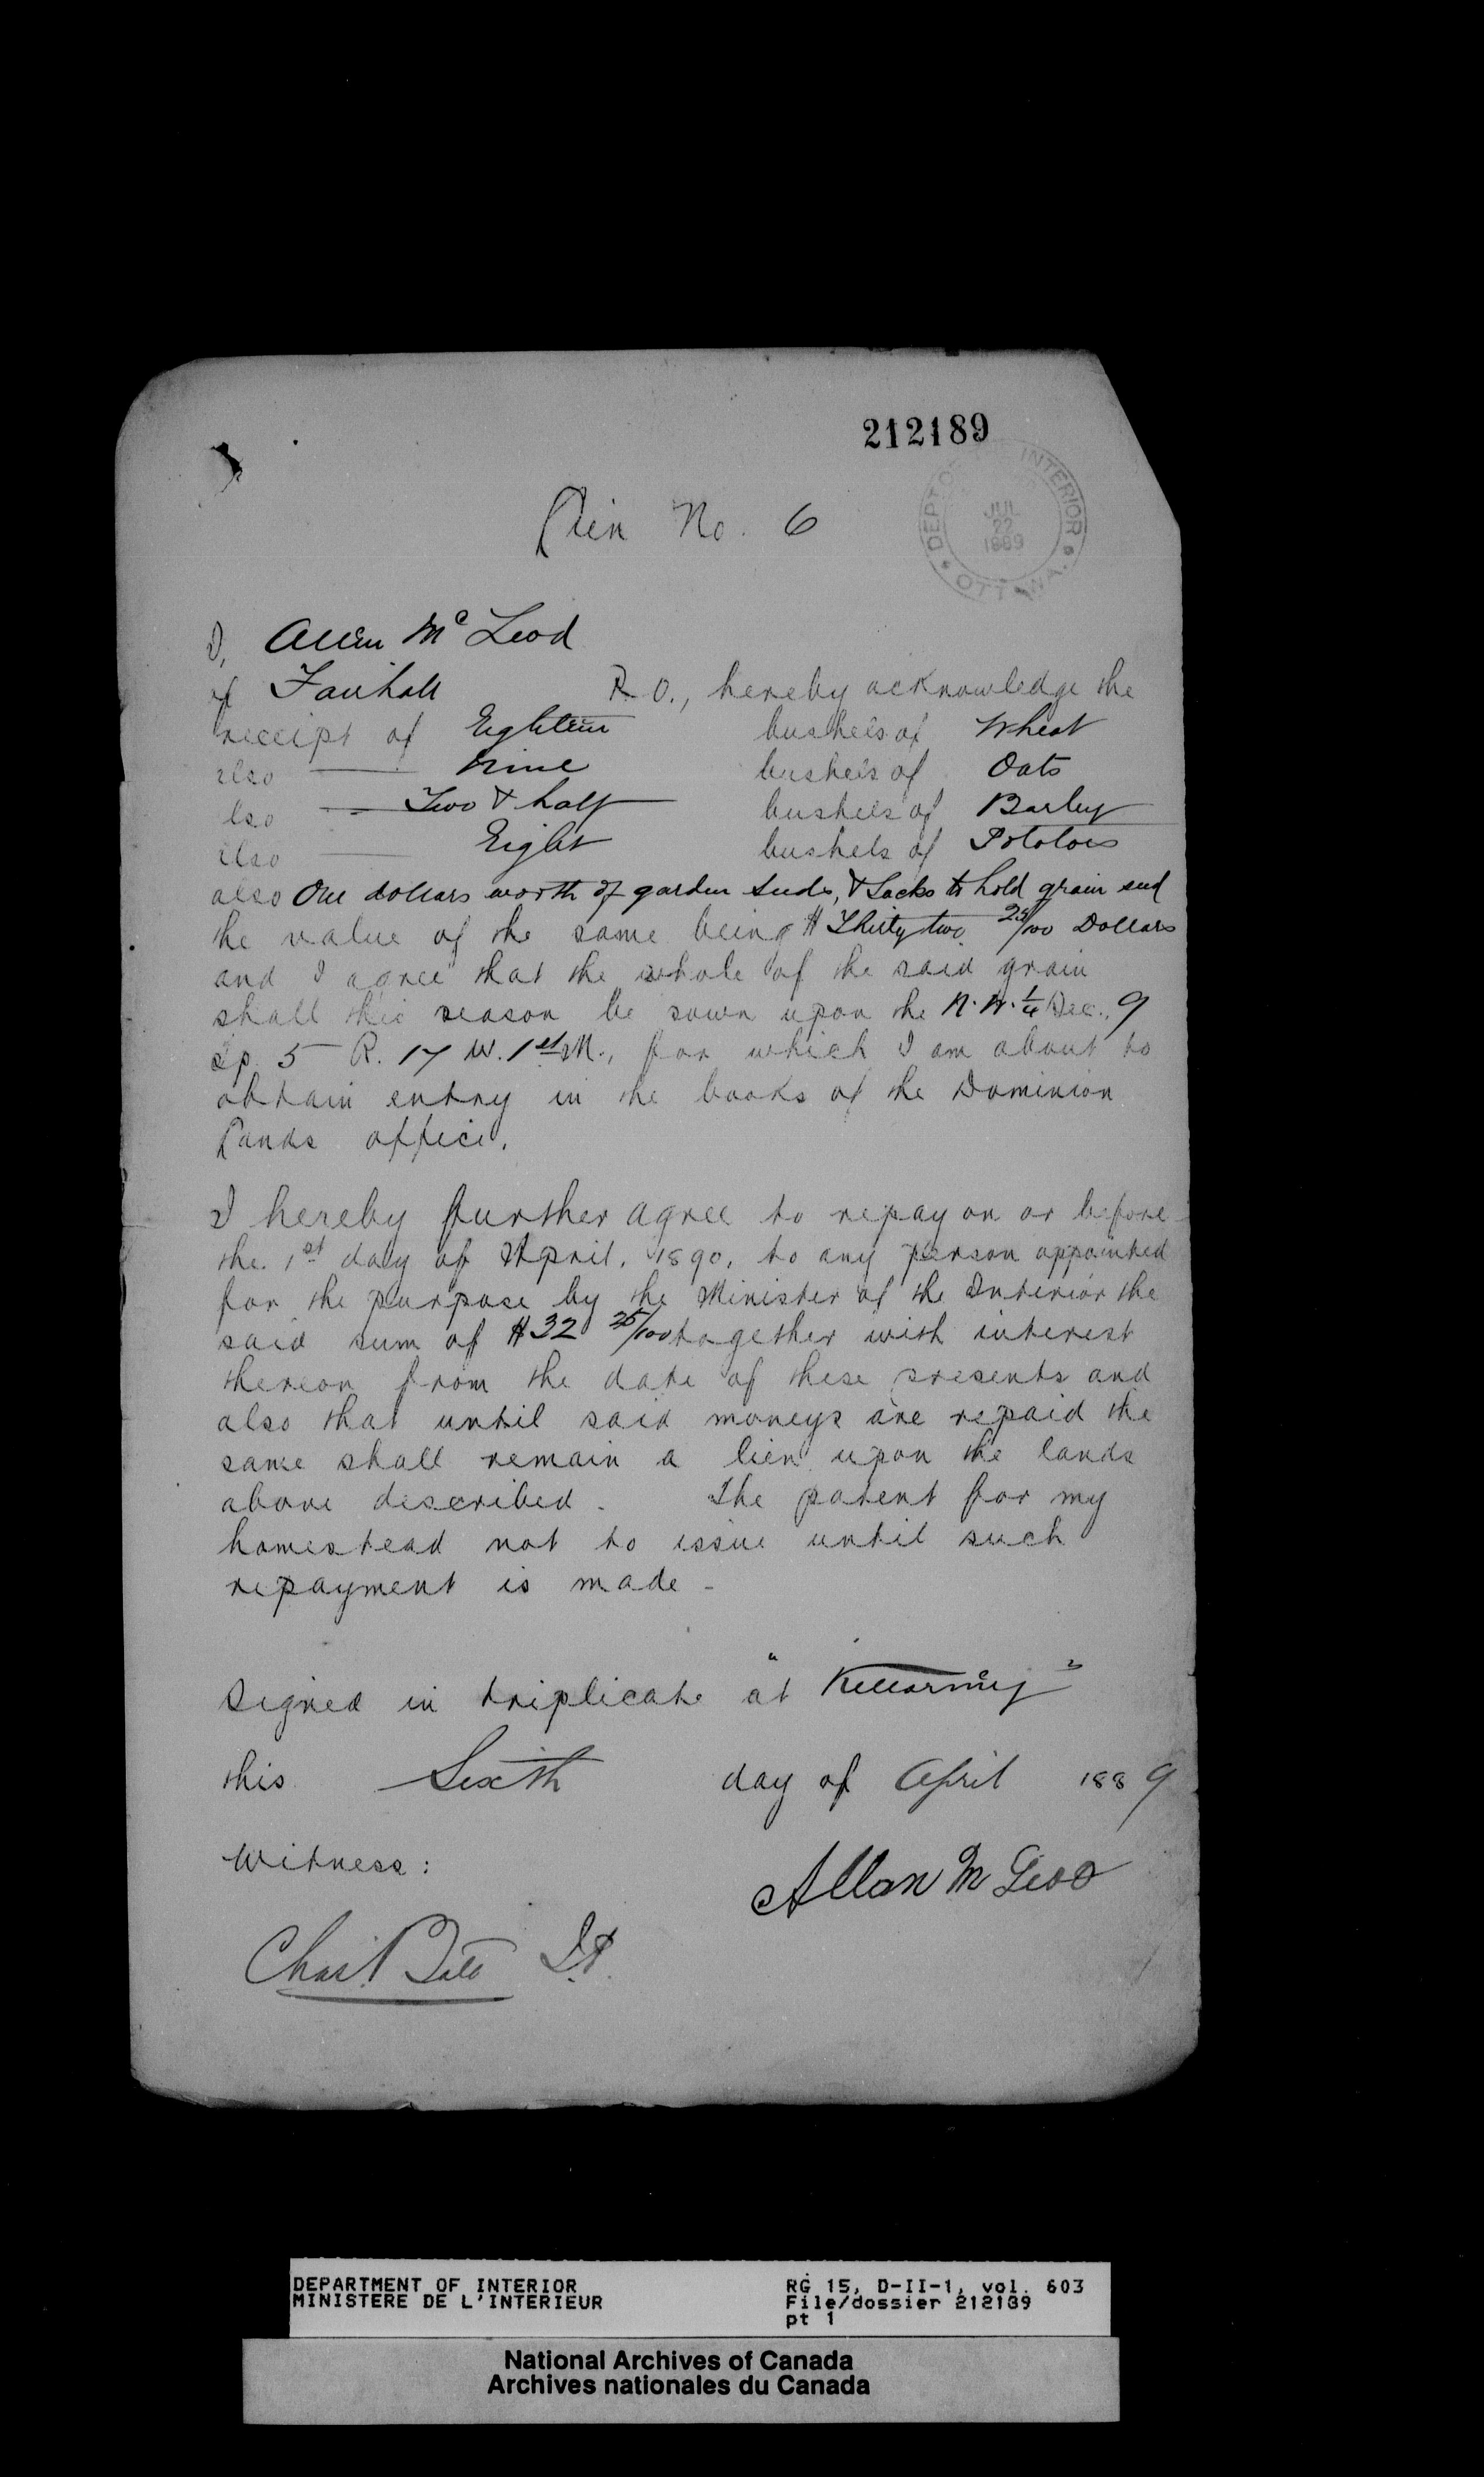 212189
DEPT OF THE INTERIOR
JUL
22
1889
OTTAWA
Lien No. 6
I, Allen Mc Leod
of Fairhall P.O., hereby acknowledge the
receipt of Eighteen bushels of Wheat
also nine bushels of Oats
also Two & half bushels of Barley
also Eight bushels of Potatoes
also One dollars worth of garden seeds, & Sacks to hold grain seed
the value of the same being $ Thirty two 25/100 Dollars
and I agree that the whole of the said grain
shall this season be sown upon the N.W. 1/4 Sec. 9
Tp. 5 R. 17 W. 1st M., for which I am about to
obtain entry in the books of the Dominion
Lands office.
I hereby further agree to repay on or before
the 1st day of April, 1890, to any person appointed
for the purpose by the Minister of the Interior the
said sum of $32 25/100 together with interest
thereon from the date of these presents and
also that until said moneys are repaid the
same shall remain a lien upon the lands
above described. The patent for my
homestead not to issue until such
repayment is made -
Signed in triplicate at "Killarney"
this Sixth day of April 1889
Witness:
Allan Mc Leod
Chas.
DEPARTMENT OF INTERIOR
MINISTERE DE L'INTERIEUR
RG 15, D-II-1, vol. 603
File/dossier 212189
pt 1
National Archives of Canada
Archives nationales du Canada